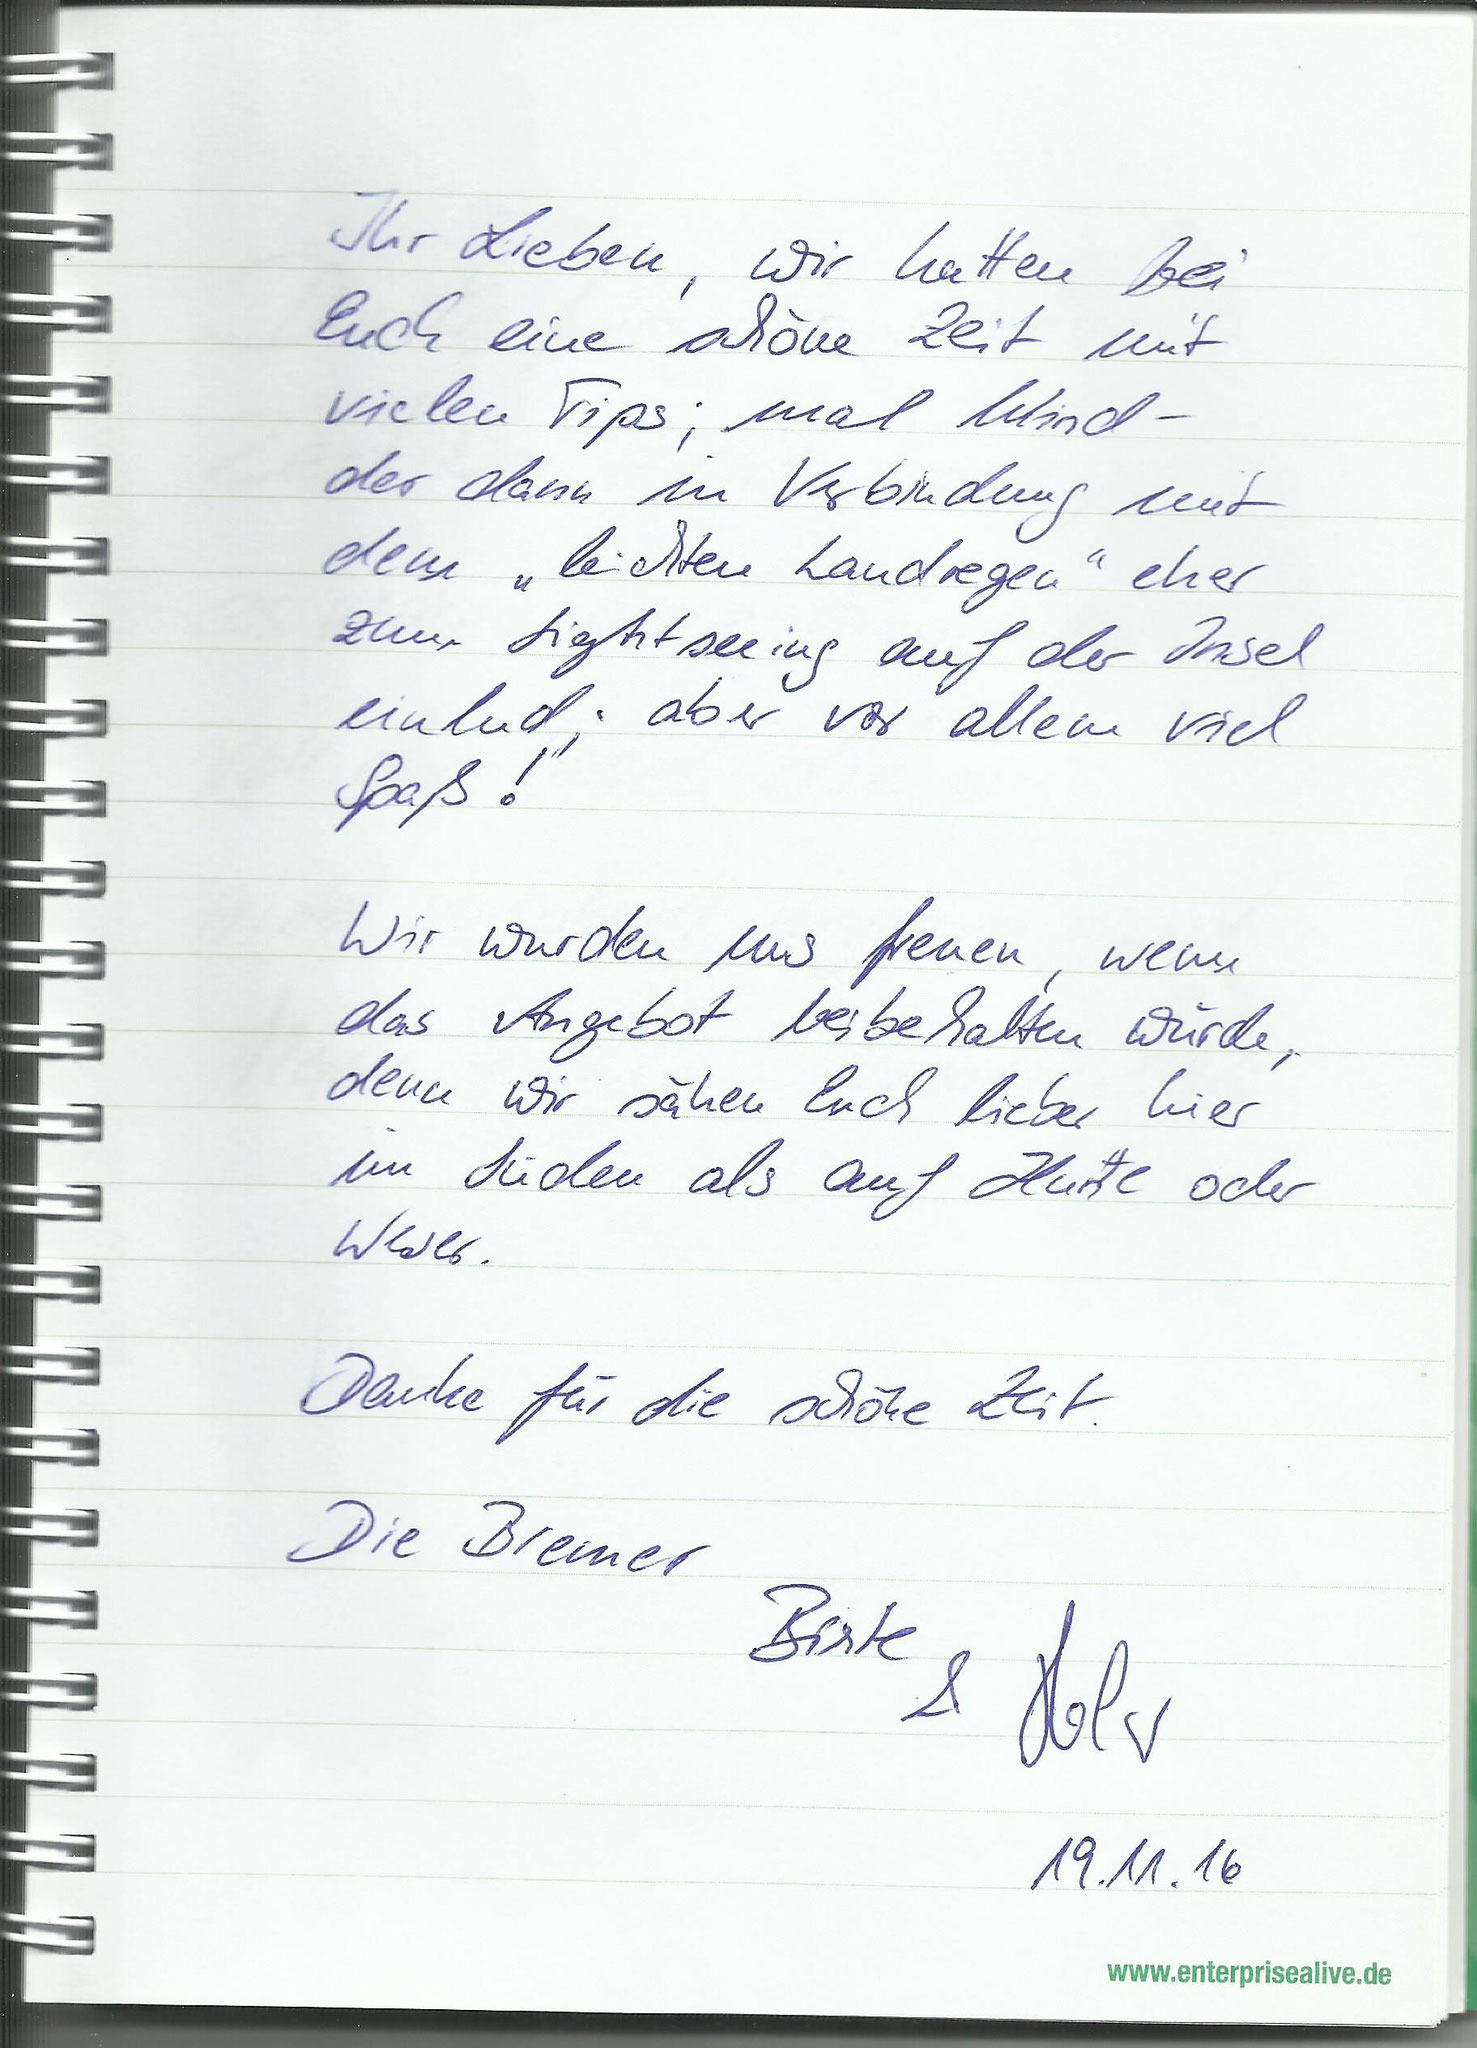 Ihr Lieben, wir hatten bei
Euch eine schöne Zeit mit
vielen Tips; mal Wind -
der dann in Verbindung mit
dem „leichten Landregen“ eher
zum Sightseeing auf der Insel
einlud; aber vor allem viel
Spaß!
Wir wurden uns freuen, wenn
das Angebot beibehalten würde,
denn wir sähen Euch lieber hier
im Süden als auf Hunte oder
Weser.
Danke für die schöne Zeit.
Die Bremer
Birte
&
19.11.16
www.enterprisealive.de